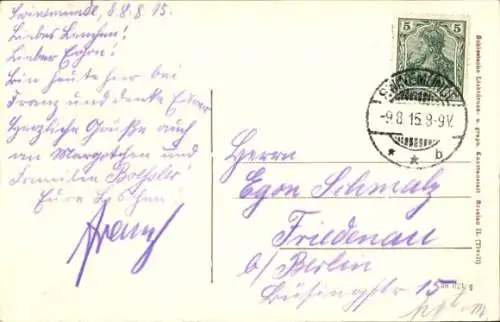 Swinemünde, 8.8.15.
Liebes Lenchen!
Lieber Egon!
Bin heute hier bei
Franz und denke Eurer
Herzliche Grüße auch
an Margotchen und
Familie
Eure
Franz
5
SWINEMÜNDE
-9.8.15.8-9V.
* * b
Herrn
Egon Schmalz
Friedenau
b/ Berlin
Büsingstr 15
Schlesische Lichtdruck- u. graph. Kunstanstalt Breslau II. (Tivoli)